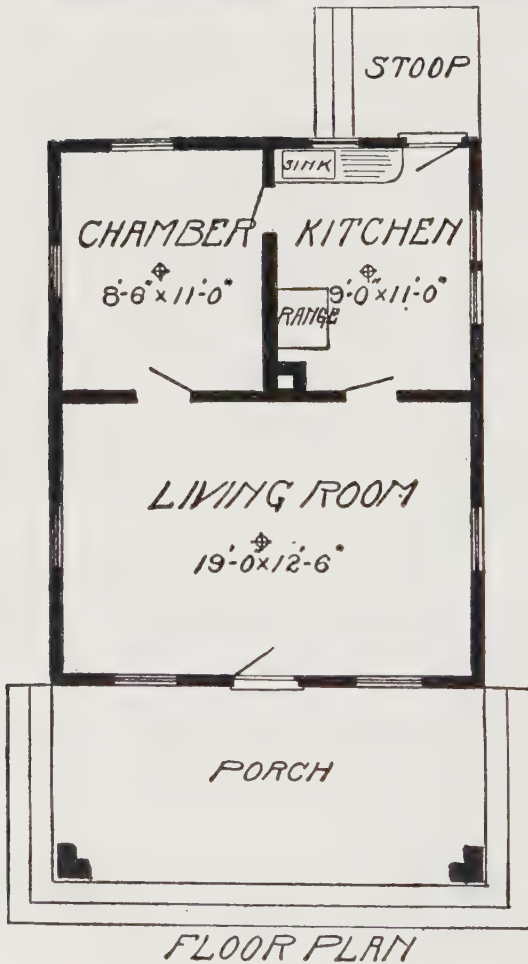 STOOP
SINK
CHAMBER
8'-6" x 11'-0"
KITCHEN
9'-0" x 11'-0"
RANGE
LIVING ROOM
19'-0 x 12'-6"
PORCH
FLOOR PLAN